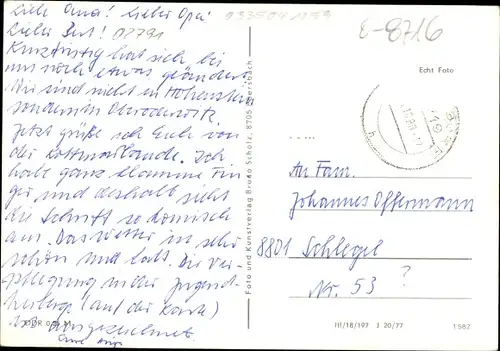 Liebe Oma! Lieber Opa!
Lieber Bert!
Kurzfristig hat sich bei
uns noch etwas geändert.
Wir sind nicht in Hohenstein
sondern in Oberoderwitz.
Jetzt grüße ich Euch von
der Kottmarbaude. Ich
habe ganz klamme Fin
ger und deshalb sieht
die Schrift so komisch
aus. Das Wetter ist sehr
schön und kalt. Die Ver-
pflegung in der Jugend-
herberge (auf der Karte)
ist ausgezeichnet.
Eure
E-8716
Echt Foto
.....
An Fam.
Johannes Offermann
8801 Schlegel
Nr. 53 ?
Foto und Kunstverlag Bruno Scholz, 8705 Ebersbach
III/18/197 J 20/77
1582